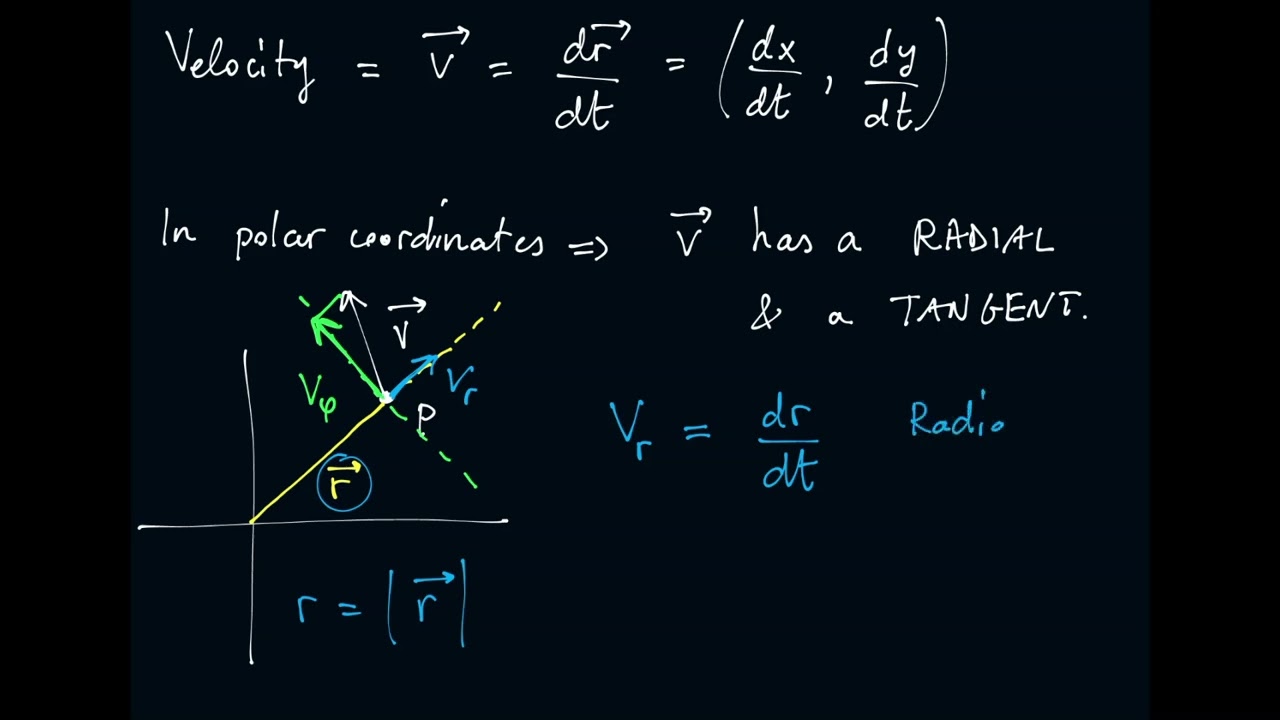 Velocity = v⃗ = dr⃗/dt = (dx/dt, dy/dt)
In polar coordinates ⇒ v⃗ has a RADIAL
& a TANGENT.
v⃗
Vφ
Vr
P
r⃗
Vr = dr/dt Radia
r = |r⃗|